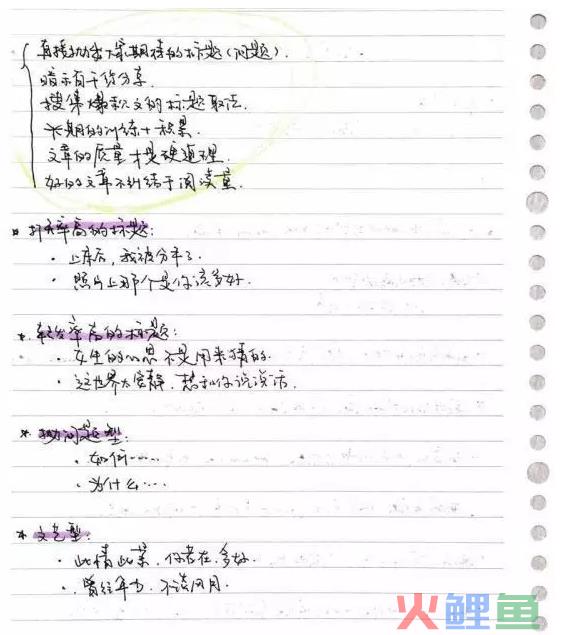 直接抛出大家期待的标题(问题).
暗示有干货分享.
搜集爆款文的标题取法.
长期的训练+积累.
文章的质量才是硬道理.
好的文章不纠结于阅读量.
打开率高的标题:
· 上床后,我被分手了.
· 照片上那个是你该多好.
* 转发率高的标题:
· 女生的心思不是用来猜的.
· 这世界太安静.想和你说说话.
* 抛问题型:
· 如何……
· 为什么…
* 文艺型:
· 此情此景,你若在,多好.
· 曾经年少.不谈风月.
火鲤鱼